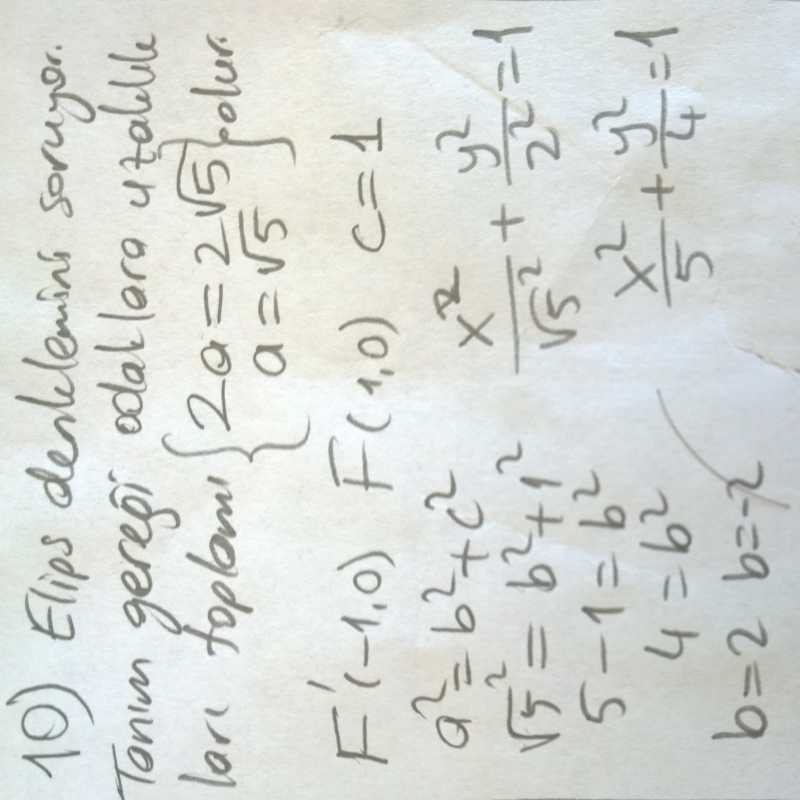 10) Elips denklemini soruyor.
Tanım gereği odaklara uzaklık
ları toplamı { 2a = 2√5 } olur.
a = √5
F'(-1,0) F(1,0) c = 1
a² = b² + c²
√5² = b² + 1²
5 - 1 = b²
4 = b²
b = 2 b = -2
x²/√5² + y²/2² = 1
x²/5 + y²/4 = 1